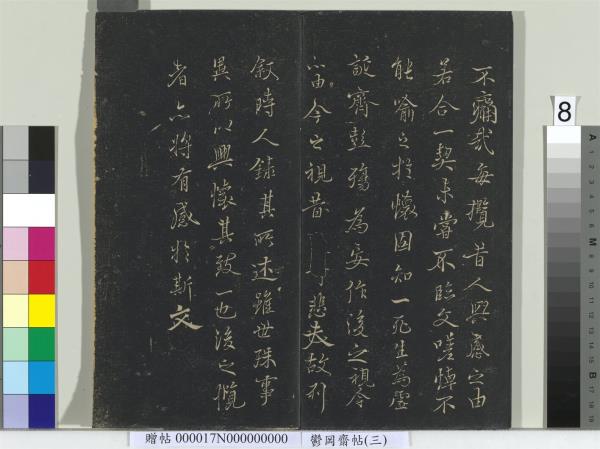 不痛哉每攬昔人興感之由
若合一契未嘗不臨文嗟悼不
能喻之於懷固知一死生為虛
誕齊彭殤為妄作後之視今
亦由今之視昔悲夫故列
敘時人錄其所述雖世殊事
異所以興懷其致一也後之攬
者亦將有感於斯文
8
贈帖 000017N000000000 鬱岡齋帖(三)